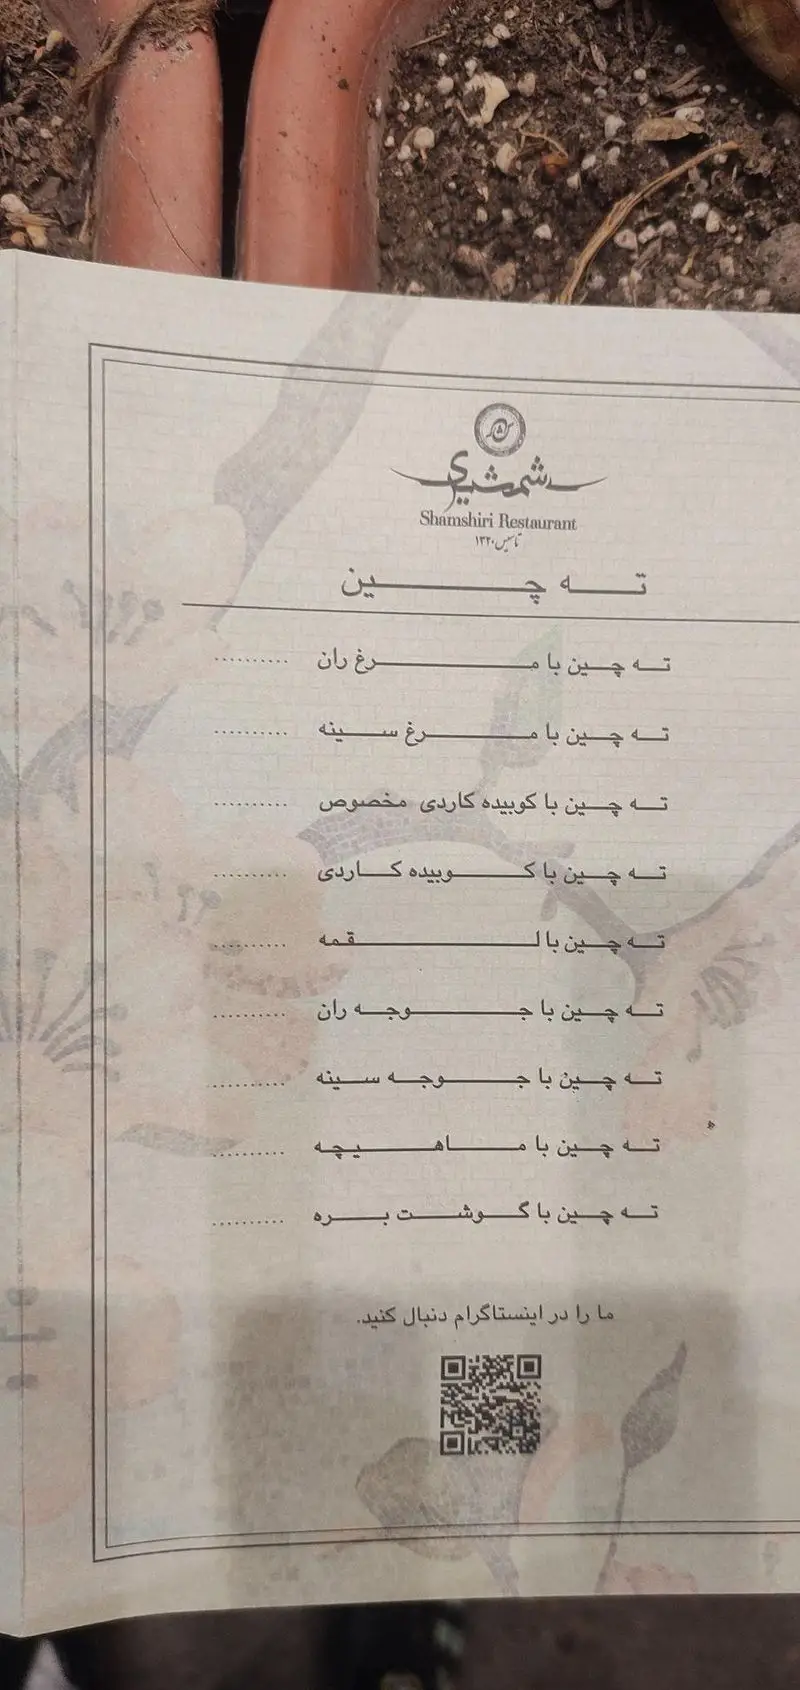 شمشیری
Shamshiri Restaurant
تاسیس ۱۳۲۰
ته چین
ته چین با مرغ ران ..........
ته چین با مرغ سینه ..........
ته چین با کوبیده کاردی مخصوص ..........
ته چین با کوبیده کاردی ..........
ته چین با لقمه ..........
ته چین با جوجه ران ..........
ته چین با جوجه سینه ..........
ته چین با ماهیچه ..........
ته چین با گوشت بره ..........
ما را در اینستاگرام دنبال کنید.